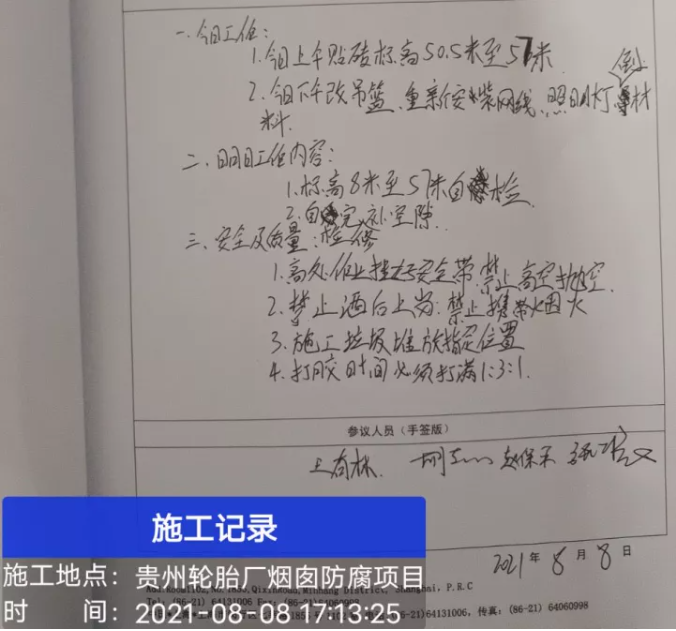 一、今日工作：
1.今日上午贴砖标高50.5米至57米
2.今日下午改吊篮、重新安装网线、照明灯、倒材
料.
二、明日工作内容：
1.标高8米至57米自检.
2.自完补空隙.
三、安全及质量：检修
1.高处作业挂好安全带.禁止高空抛空.
2.禁止酒后上岗：禁止携带烟火
3.施工垃圾堆放指定位置
4.打胶时间必须打满1:3:1.
参议人员（手签版）
赵保乐
2021年8月8日
施工记录
施工地点：贵州轮胎厂烟囱防腐项目
时 间：2021-08-08 17:13:25
Minhang District, Shanghai, P.R.C
64131006，传真：(86-21) 64060998